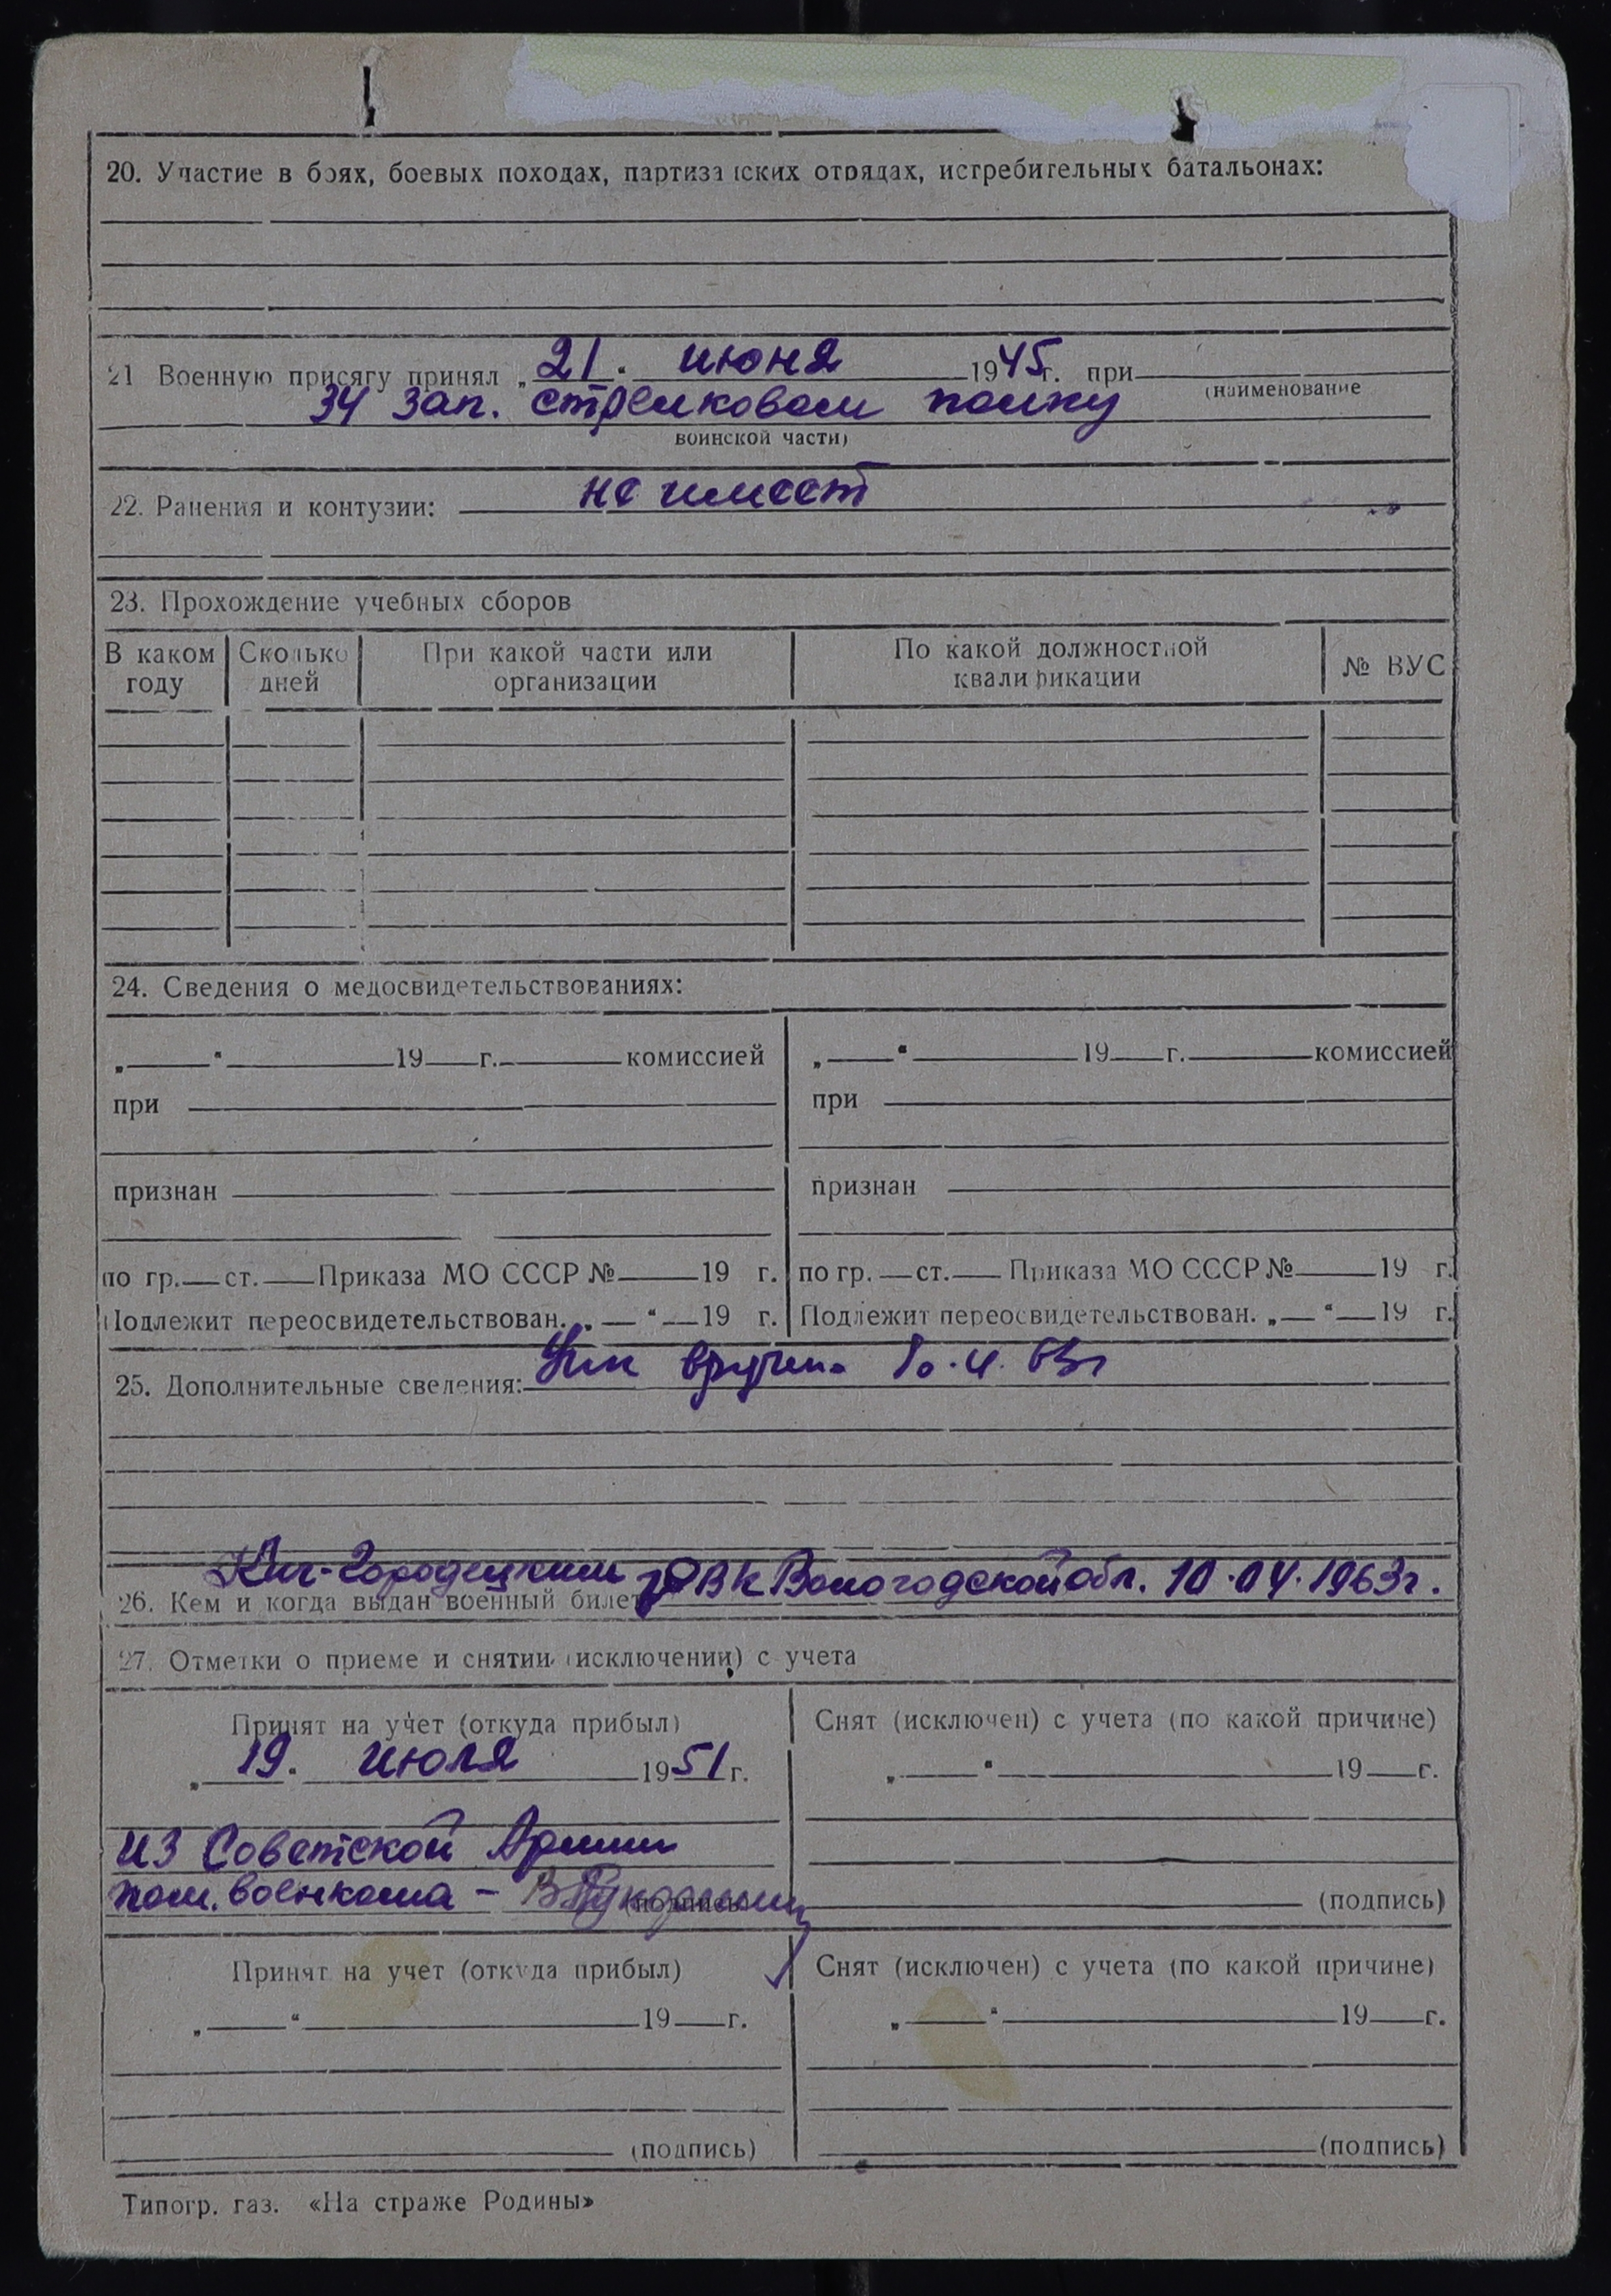 20. Участие в боях, боевых походах, партизанских отрядах, истребительных батальонах:
21 Военную присягу принял „21." июня 1945г. при
(наименование
34 зап. стрелковом полку
воинской части)
22. Ранения и контузии: не имеет
23. Прохождение учебных сборов
В каком году
Сколько дней
При какой части или организации
По какой должностной квалификации
№ ВУС
24. Сведения о медосвидетельствованиях:
„ " 19 г. комиссией
при
признан
по гр. ст. Приказа МО СССР № 19 г.
Подлежит переосвидетельствован. „ " 19 г.
„ " 19 г. комиссией
при
признан
по гр. ст. Приказа МО СССР № 19 г.
Подлежит переосвидетельствован. „ " 19 г.
25. Дополнительные сведения: вручен
26. Кем и когда выдан военный билет Кич-Городецким РВК Вологодской обл. 10.04.1963г.
27. Отметки о приеме и снятии (исключении) с учета
Принят на учет (откуда прибыл)
„19. июля 1951г.
из Советской Армии
пом. военкома –
(подпись)
Снят (исключен) с учета (по какой причине)
„ " 19 г.
(подпись)
Принят на учет (откуда прибыл)
„ " 19 г.
(подпись)
Снят (исключен) с учета (по какой причине)
„ " 19 г.
(подпись)
Типогр. газ. «На страже Родины»